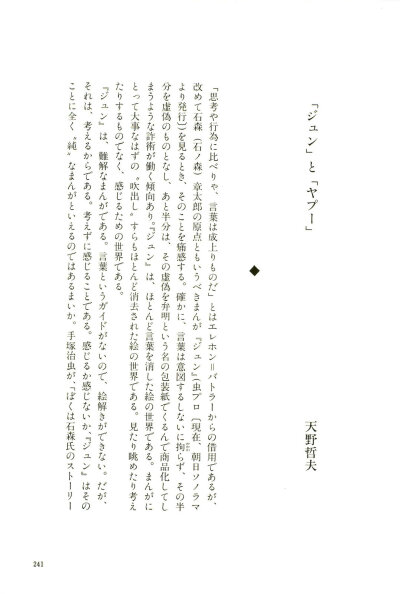 「ジュン」と「ヤプー」
天野哲夫
「思考や行為に比べりゃ、言葉は成上りものだ」とはエレホン＝バトラーからの借用であるが、
改めて石森（石ノ森）章太郎の原点ともいうべきまんが『ジュン』（虫プロ〔現在、朝日ソノラマ
より発行〕）を見るとき、そのことを痛感する。確かに、言葉は意図するしないに拘らず、その半
分を虚偽のものとなし、あと半分は、その虚偽を弁明という名の包装紙でくるんで商品化してし
まうような詐術が働く傾向あり。『ジュン』は、ほとんど言葉を消した絵の世界である。まんがに
とって大事なはずの〝吹出し〟すらもほとんど消去された絵の世界である。見たり眺めたり考え
たりするものでなく、感じるための世界である。
『ジュン』は、難解なまんがである。言葉というガイドがないので、絵解きができない。だが、
それは、考えるからである。考えずに感じることである。感じるか感じないか、『ジュン』はその
ことに全く〝純〟なまんがといえるのではあるまいか。手塚治虫が、「ぼくは石森氏のストーリー
241